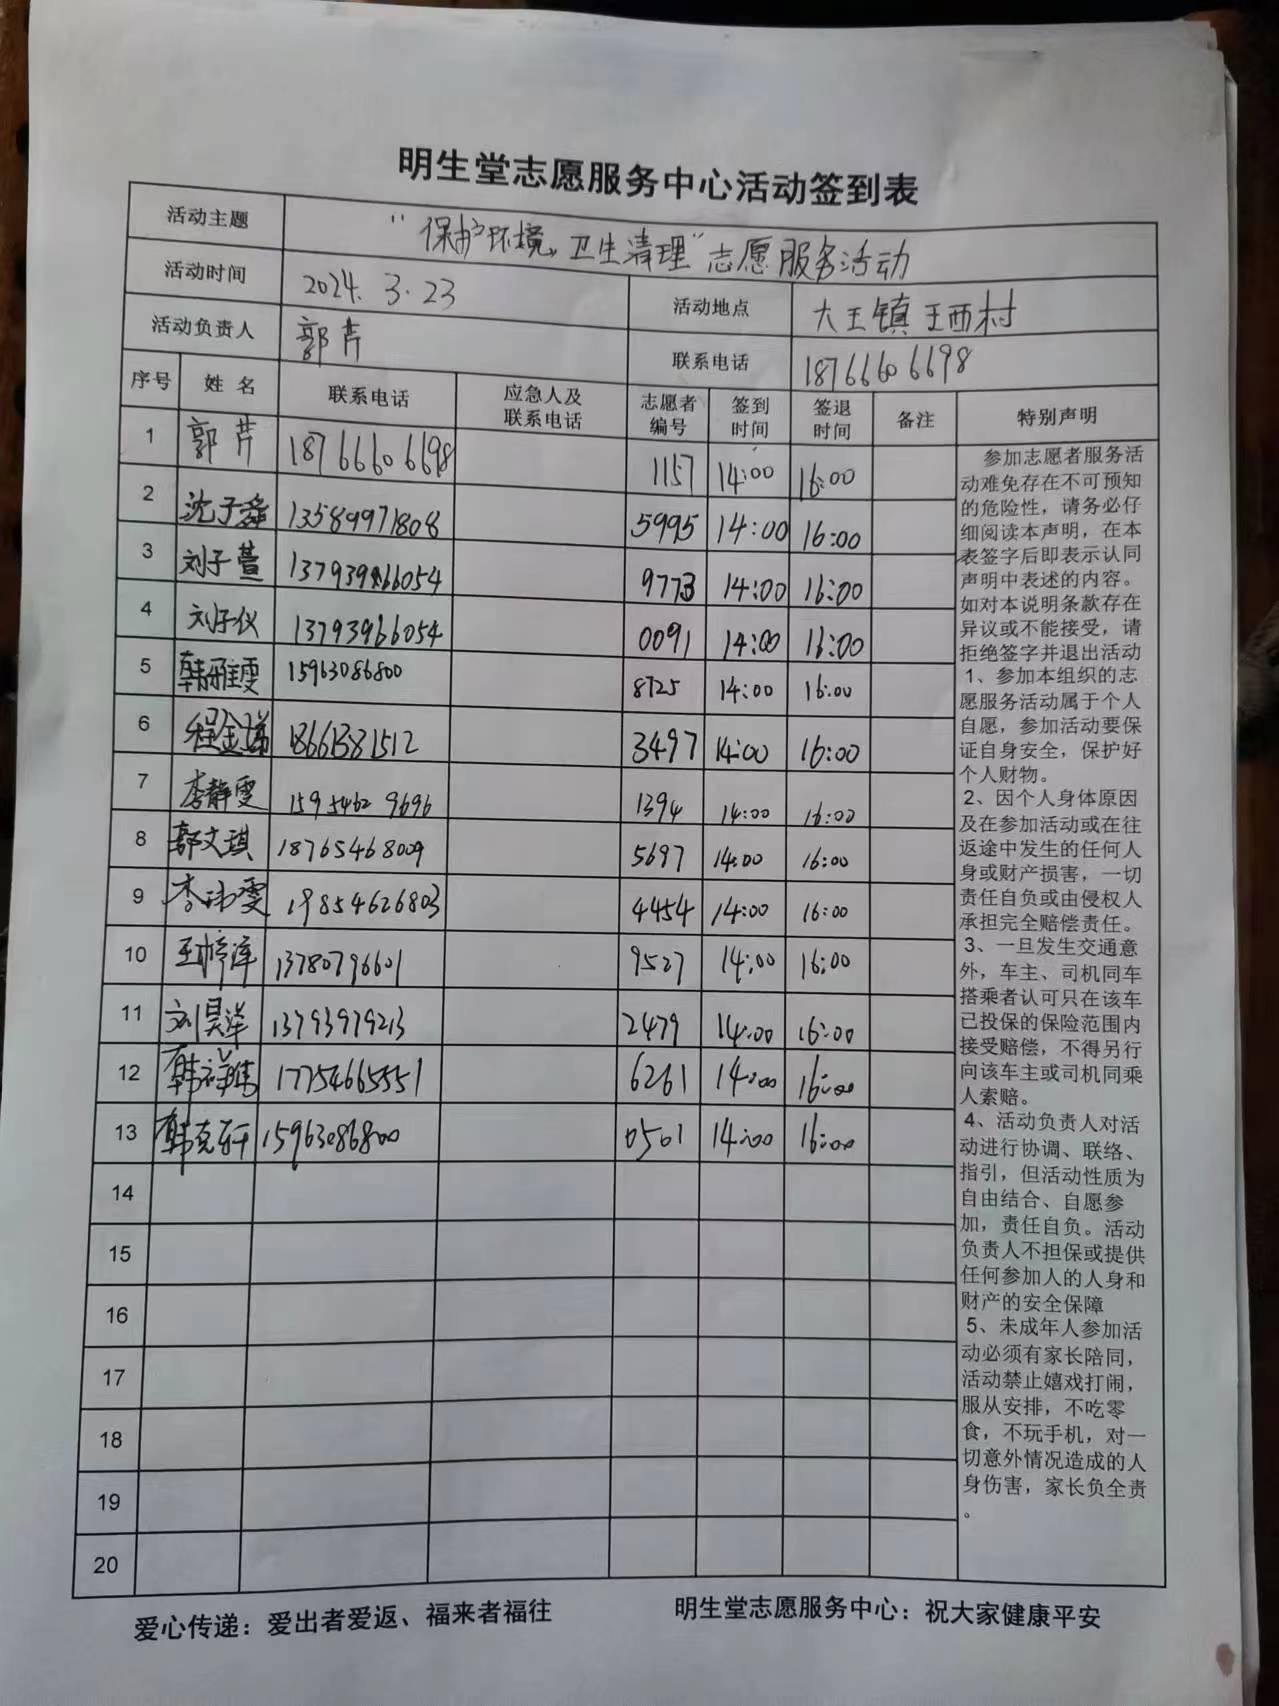 明生堂志愿服务中心活动签到表
活动主题 “保护环境,卫生清理”志愿服务活动
活动时间 2024.3.23 活动地点 大王镇王西村
活动负责人 郭芹 联系电话 18766606698
序号 姓名 联系电话 应急人及联系电话 志愿者编号 签到时间 签退时间 备注 特别声明
1 郭芹 18766606698 1157 14:00 16:00
2 沈子舜 13589971808 5995 14:00 16:00
3 刘子萱 9773 14:00 16:00
4 刘子仪 13793966054 0091 14:00 16:00
5 韩雅雯 15963086800 8725 14:00 16:00
6 程金 18661381512 3497 14:00 16:00
7 李静雯 15954629696 1394 14:00 16:00
8 郭文琪 18765468009 5697 14:00 16:00
9 李玮雯 19854626803 4454 14:00 16:00
10 王梓泽 13780796601 9527 14:00 16:00
11 刘昊洋 13793979213 2479 14:00 16:00
12 韩祥伟 17754665551 6261 14:00 16:00
13 韩克轩 15963086800 0501 14:00 16:00
14
15
16
17
18
19
20
参加志愿者服务活
动难免存在不可预知
的危险性，请务必仔
细阅读本声明，在本
表签字后即表示认同
声明中表述的内容。
如对本说明条款存在
异议或不能接受，请
拒绝签字并退出活动
1、参加本组织的志
愿服务活动属于个人
自愿，参加活动要保
证自身安全，保护好
个人财物。
2、因个人身体原因
及在参加活动或在往
返途中发生的任何人
身或财产损害，一切
责任自负或由侵权人
承担完全赔偿责任。
3、一旦发生交通意
外，车主、司机同车
搭乘者认可只在该车
已投保的保险范围内
接受赔偿，不得另行
向该车主或司机同乘
人索赔。
4、活动负责人对活
动进行协调、联络、
指引，但活动性质为
自由结合、自愿参
加，责任自负。活动
负责人不担保或提供
任何参加人的人身和
财产的安全保障
5、未成年人参加活
动必须有家长陪同，
活动禁止嬉戏打闹，
服从安排，不吃零
食，不玩手机，对一
切意外情况造成的人
身伤害，家长负全责
。
爱心传递：爱出者爱返、福来者福往 明生堂志愿服务中心：祝大家健康平安